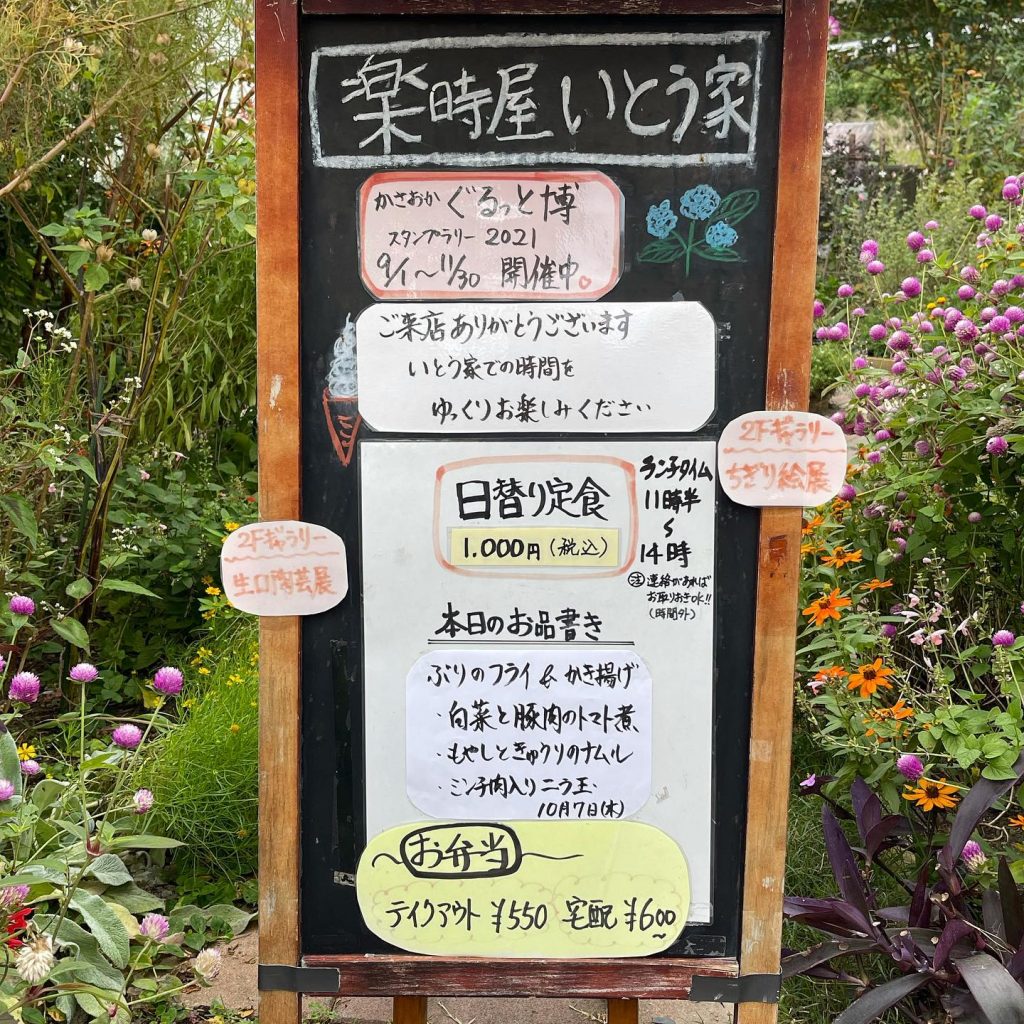 楽時屋いとう家
かさおか ぐるっと博
スタンプラリー 2021
9/1〜11/30 開催中
ご来店ありがとうございます
いとう家での時間を
ゆっくりお楽しみください
2Fギャラリー
ちぎり絵展
2Fギャラリー
生口陶芸展
日替り定食
1.000円(税込)
ランチタイム
11時半
〜
14時
注 連絡があれば
お取りおきOK!!
(時間外)
本日のお品書き
ぶりのフライ & かき揚げ
・白菜と豚肉のトマト煮
・もやしときゅうりのナムル
・ミンチ肉入りニラ玉
10月7日(木)
〜お弁当
テイクアウト ¥550 宅配 ¥600〜